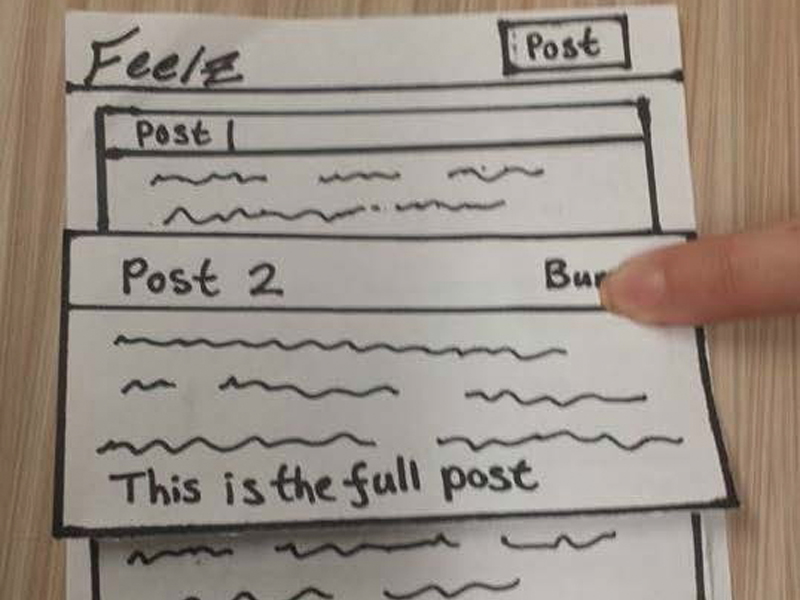 Feelz
Post
Post 1
Post 2
This is the full post